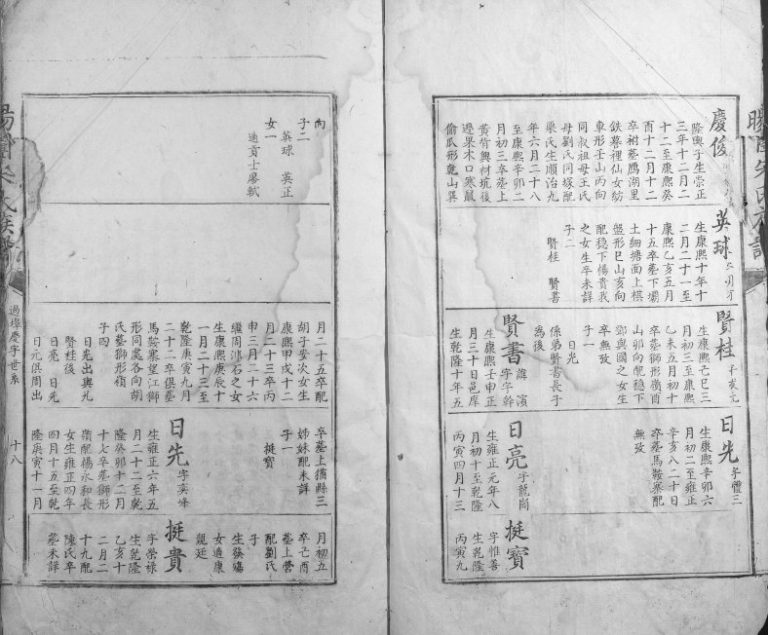 慶俊
隆興子生崇正
三年十二月二
十二至康熙癸
酉十二月十二
卒柑墓鴨湖里
鉄墓裡仙女紡
車形壬山丙向
同叔祖母王氏
母劉氏同塚配
栗氏生順治九
年六月二十八
至康熙辛卯二
月初三卒墓上
黃背興材坑後
邊果木口寒鼠
偷瓜形乾山巽
英球
生康熙十年十
二月二十一至
康熙乙亥五月
十五卒墓下壩
土細塘面上棋
盤形巳山亥向
配穩下楊貴我
之女生卒未詳
子二
賢桂 賢書
賢桂
生康熙己巳三
月初三至康熙
乙未五月初十
卒墓獅形嶺酉
山卯向配穩下
鄧與國之女生
卒無攷
子一
日光
係弟賢書長子
為後
賢書
諱濱
字宇幹
生康熙壬申正
月三十日邑庠
生乾隆十年五
日先
字禮三
生康熙辛卯六
月初二至雍正
辛亥八二十日
卒墓馬鞍寨配
無攷
日亮
字龍岡
生雍正元年八
月初十至乾隆
丙寅四月十三
挺寶
字惟善
生乾隆
丙寅九
向
子二
英球 英正
女一
適貢士廖軾
月二十五卒配
胡子安次女生
康熙甲戌十二
月二十三卒丙
申三月二十六
繼周沛石之女
生康熙庚辰十
一月二十三至
乾隆庚寅九月
二十二卒俱墓
馬鞍寨望江獅
形同處各向胡
氏墓獅形嶺
子四
日光出與兄
賢桂後
日亮 日先
日元俱周出
卒墓上猶縣三
姊妹配未詳
子一
挺寶
日先
字奕峰
生雍正六年五
月二十二至乾
隆癸卯十二月
十七卒墓獅形
嶺配楊永和長
女生雍正四年
四月十五至乾
隆庚寅十一月
月初五
卒己酉
墓上營
配劉氏
子
生筱瑞
女適康
競廷
挺貴
字榮祿
生乾隆
乙亥十
二月二
十九配
陳氏卒
墓未詳
過埠慶字世系
十八